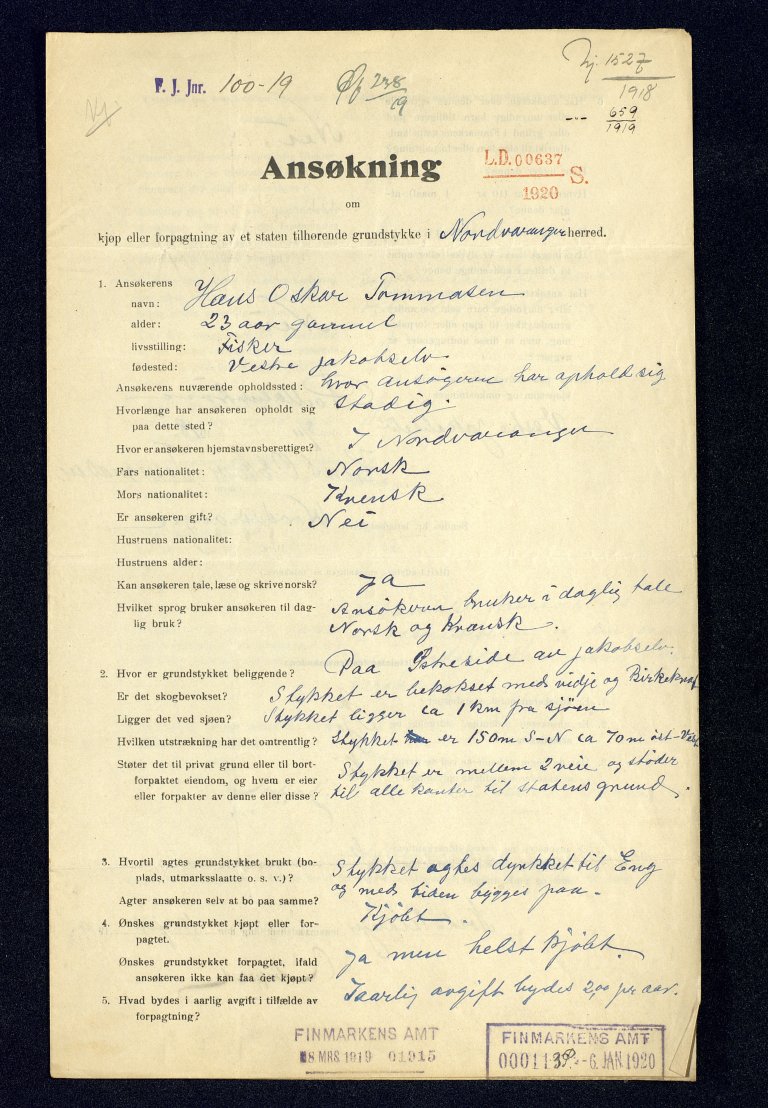 F. J. Jnr. 100-19
Nj. 1527
1918
659
1919
Ansøkning
L.D. 00637 S.
1920
om
kjøp eller forpagtning av et staten tilhørende grundstykke i Nordvaranger herred.
1. Ansøkerens
navn: Hans Oskar Tommasen
alder: 23 aar gammel
livsstilling: Fisker
fødested: Vestre jakobselv.
Ansøkerens nuværende opholdssted: hvor Ansøgeren har ophold sig
Hvorlænge har ansøkeren opholdt sig stadig.
paa dette sted?
Hvor er ansøkeren hjemstavnsberettiget? I Nordvaranger
Fars nationalitet: Norsk
Mors nationalitet: Kvensk
Er ansøkeren gift? Nei
Hustruens nationalitet:
Hustruens alder:
Kan ansøkeren tale, læse og skrive norsk? ja
Hvilket sprog bruker ansøkeren til dag- Ansökeren bruker i daglig tale
lig bruk? Norsk og Kvænsk.
2. Hvor er grundstykket beliggende? Paa Østreside av jakobselv.
Er det skogbevokset? Stykket er bekokset med vidje og Birkekrat
Ligger det ved sjøen? Stykket ligger ca 1 km fra sjöen
Hvilken utstrækning har det omtrentlig? Stykket er 150 m S-N ca 70 m öst-Vest
Støter det til privat grund eller til bort-
forpaktet eiendom, og hvem er eier Stykket er mellem 2 veie og stöder
eller forpakter av denne eller disse? til alle kanter til statens grund.
3. Hvortil agtes grundstykket brukt (bo- Stykket agtes dyrkket til Eng
plads, utmarksslaatte o. s. v.)? og med tiden bygges paa.
Agter ansøkeren selv at bo paa samme?
4. Ønskes grundstykket kjøpt eller for- Kjöbt.
pagtet.
Ønskes grundstykket forpagtet, ifald ja men helst kjöbt.
ansøkeren ikke kan faa det kjøpt?
5. Hvad bydes i aarlig avgift i tilfælde av Iaarlig avgift bydes 2,00 pr aar.
forpagtning?
FINMARKENS AMT
18 MRS 1919 01915
FINMARKENS AMT
-6. JAN 1920